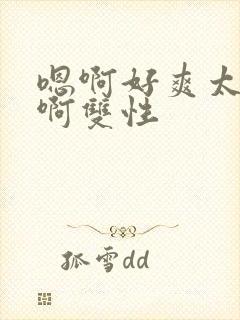 嗯啊好爽太
啊雙性
孤雪dd